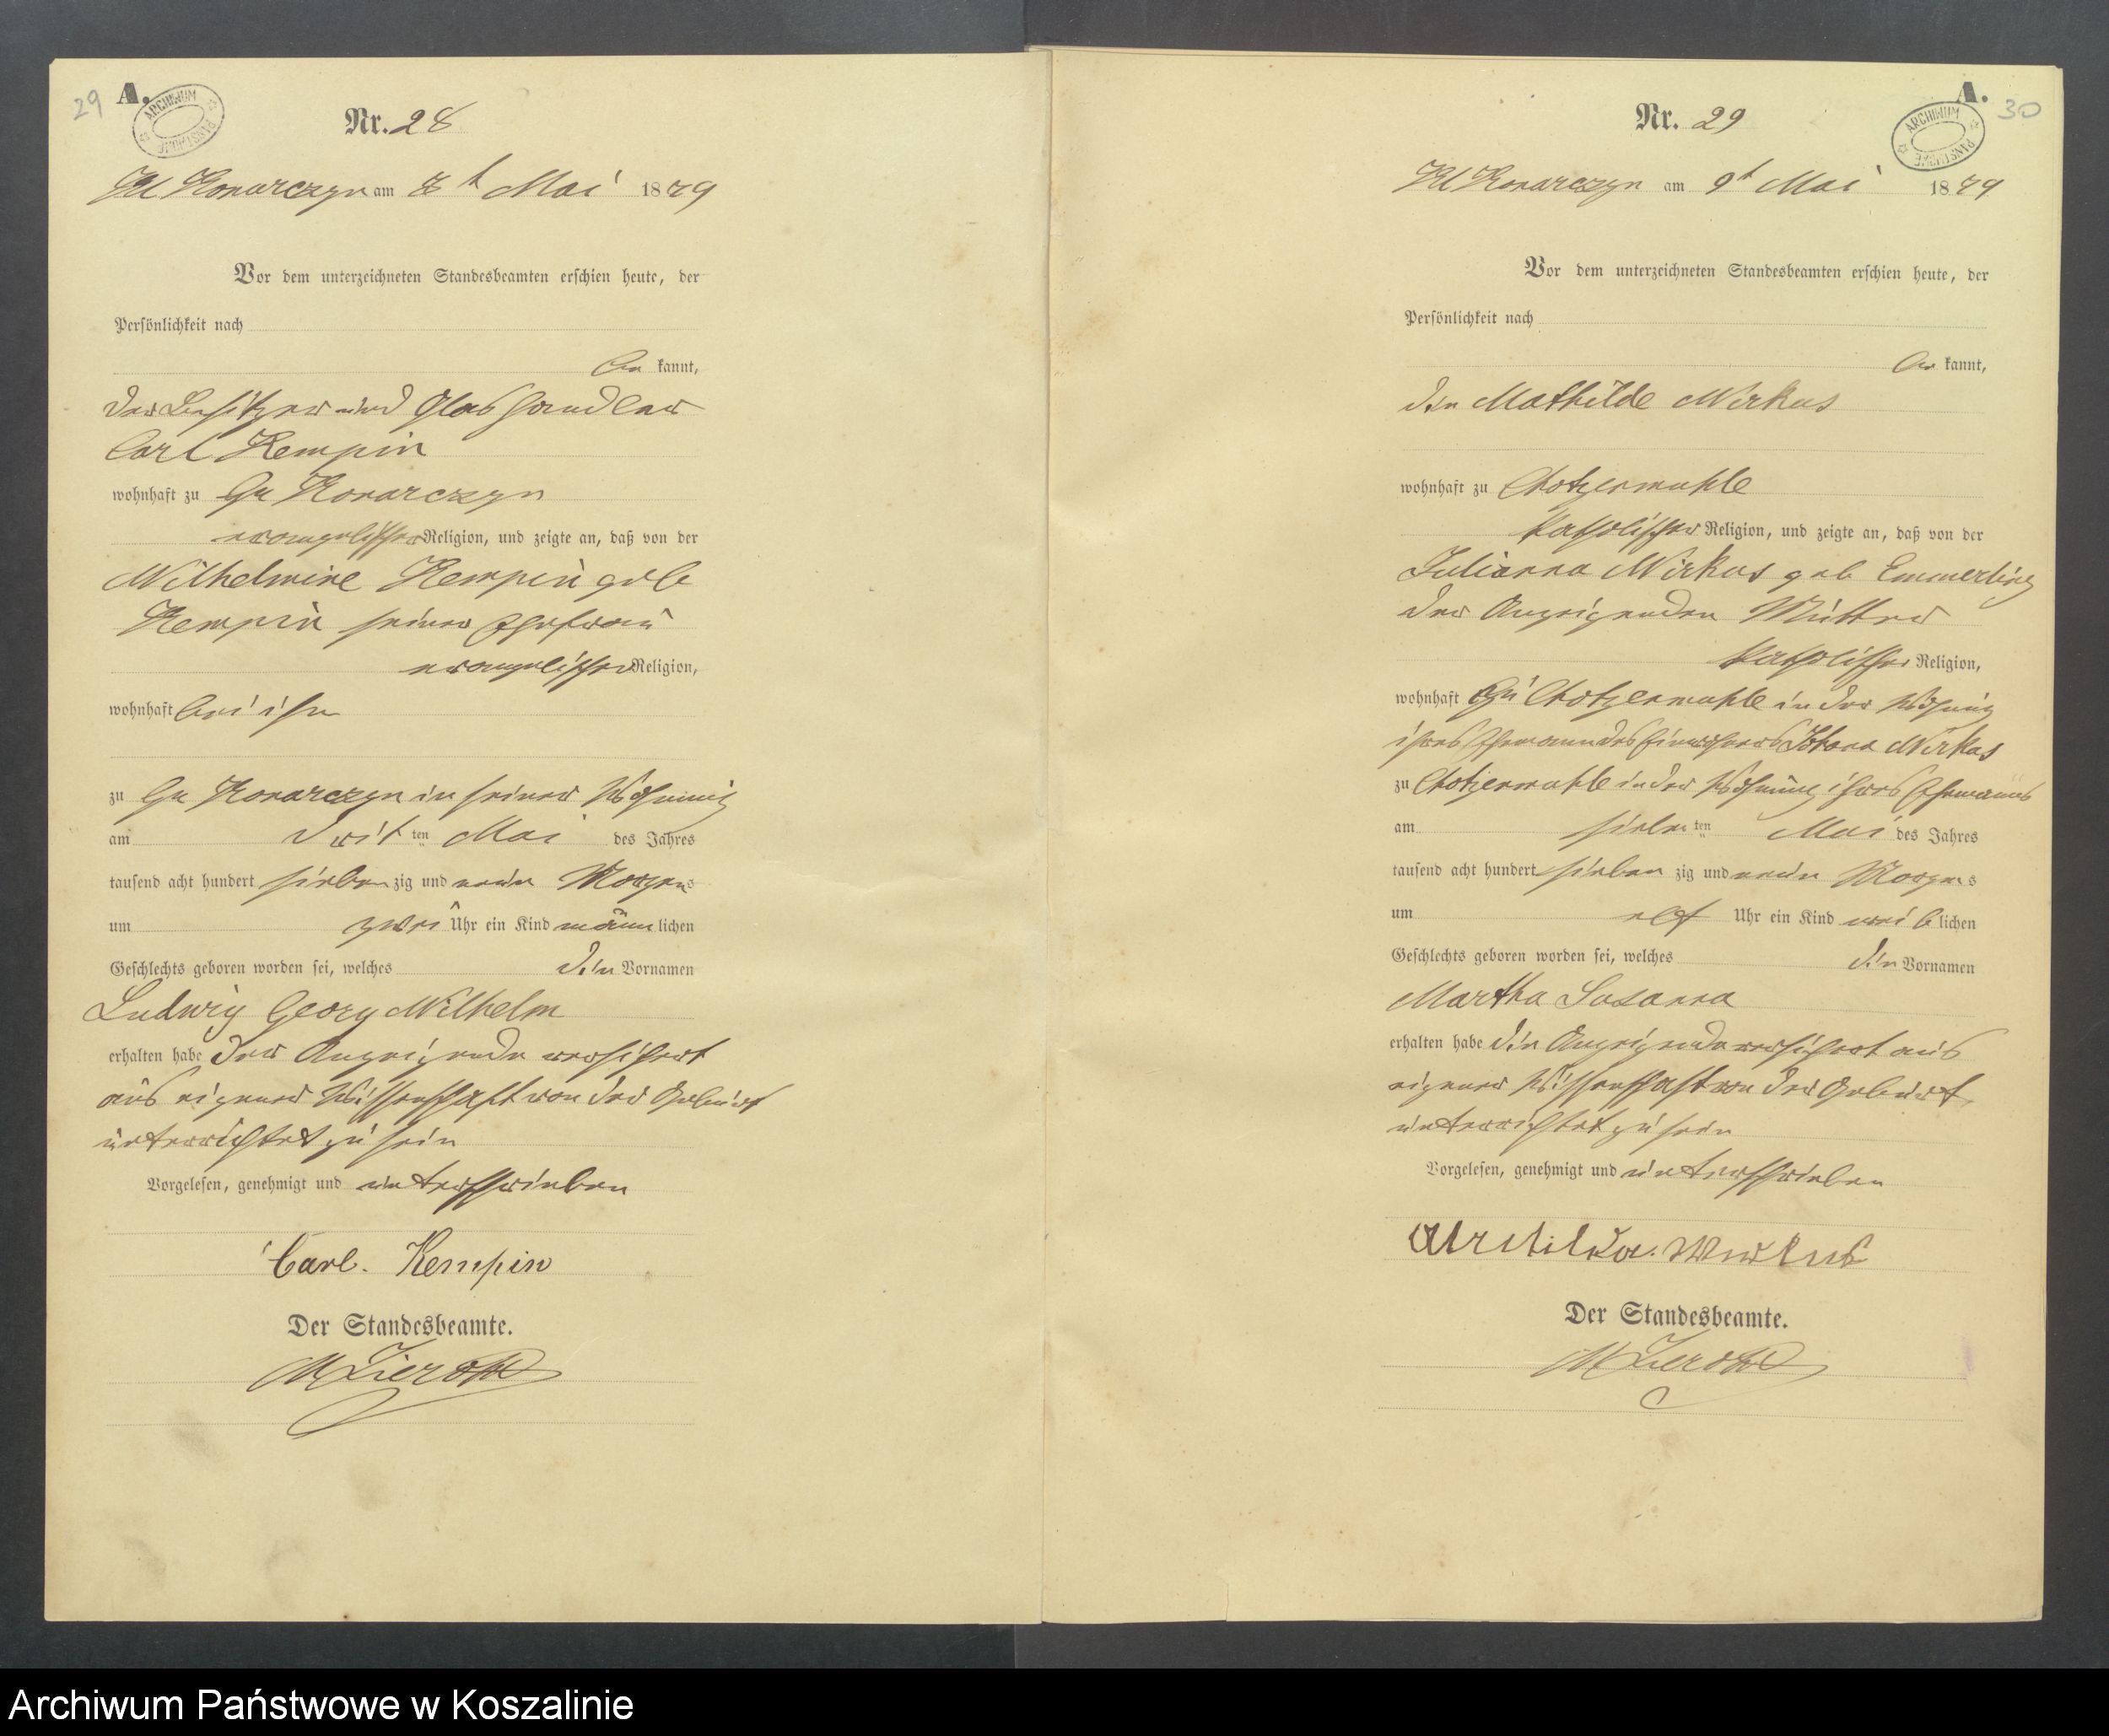 29
A.
ARCHIWUM PAŃSTWOWE
Nr. 28
Kl Konarczyn am 8t Mai 1879
Vor dem unterzeichneten Standesbeamten erschien heute, der
Persönlichkeit nach
be kannt,
der Besitzer und Glashandler
Carl Kempin
wohnhaft zu Gr Konarczyn
evangelischer Religion, und zeigte an, daß von der
Wilhelmine Kempin geb
Kempin seiner Ehefrau
evangelischer Religion,
wohnhaft bei ihm
zu Gr Konarczyn in seiner Wohnung
am drit ten Mai des Jahres
tausend acht hundert sieben zig und neun Morgens
um zwei Uhr ein Kind männ lichen
Geschlechts geboren worden sei, welches die Vornamen
Ludwig Georg Wilhelm
erhalten habe der Anzeigende versichert
aus eigener Wissenschaft von der Geburt
unterrichtet zu sein
Vorgelesen, genehmigt und unterschrieben
Carl. Kempin
Der Standesbeamte.
A.
30
ARCHIWUM PAŃSTWOWE
Nr. 29
Kl Konarczyn am 9t Mai 1879
Vor dem unterzeichneten Standesbeamten erschien heute, der
Persönlichkeit nach
be kannt,
die Mathilde Wirkus
wohnhaft zu Chotzenmuhle
katholischer Religion, und zeigte an, daß von der
Julianna Wirkus geb Emmerling
der Anzeigenden Mutter
katholischer Religion,
wohnhaft zu Chotzenmuhle in der Wohnung
ihres Ehemann des Einwohners Johann Wirkus
zu Chotzenmuhle in der Wohnung ihres Ehemanns
am sieben ten Mai des Jahres
tausend acht hundert sieben zig und neun Morgens
um elf Uhr ein Kind weib lichen
Geschlechts geboren worden sei, welches die Vornamen
Martha Susanna
erhalten habe die Anzeigende versichert aus
eigener Wissenschaft von der Geburt
unterrichtet zu sein
Vorgelesen, genehmigt und unterschrieben
Wirkus
Der Standesbeamte.
Archiwum Państwowe w Koszalinie